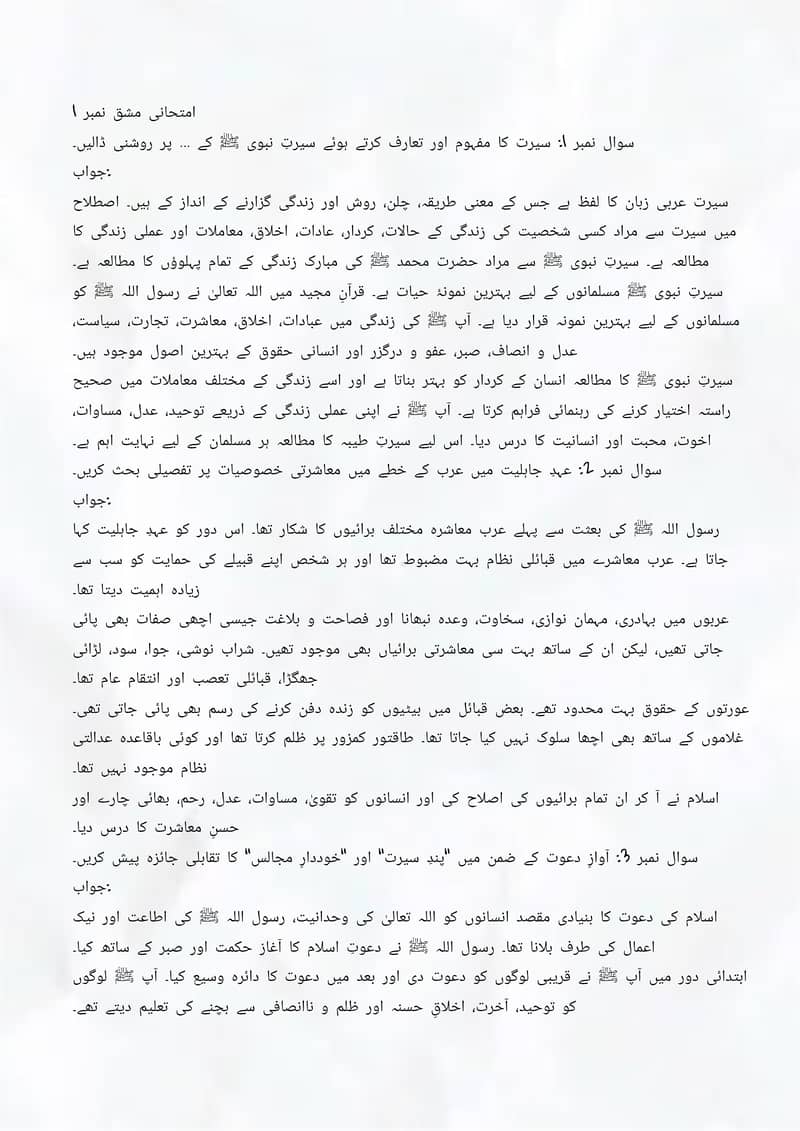 امتحانی مشق نمبر 1
سوال نمبر 1: سیرت کا مفہوم اور تعارف کرتے ہوئے سیرتِ نبوی ﷺ کے ... پر روشنی ڈالیں۔
جواب:
سیرت عربی زبان کا لفظ ہے جس کے معنی طریقہ، چلن، روش اور زندگی گزارنے کے انداز کے ہیں۔ اصطلاح
میں سیرت سے مراد کسی شخصیت کی زندگی کے حالات، کردار، عادات، اخلاق، معاملات اور عملی زندگی کا
مطالعہ ہے۔ سیرتِ نبوی ﷺ سے مراد حضرت محمد ﷺ کی مبارک زندگی کے تمام پہلوؤں کا مطالعہ ہے۔
سیرتِ نبوی ﷺ مسلمانوں کے لیے بہترین نمونۂ حیات ہے۔ قرآنِ مجید میں اللہ تعالیٰ نے رسول اللہ ﷺ کو
مسلمانوں کے لیے بہترین نمونہ قرار دیا ہے۔ آپ ﷺ کی زندگی میں عبادات، اخلاق، معاشرت، تجارت، سیاست،
عدل و انصاف، صبر، عفو و درگزر اور انسانی حقوق کے بہترین اصول موجود ہیں۔
سیرتِ نبوی ﷺ کا مطالعہ انسان کے کردار کو بہتر بناتا ہے اور اسے زندگی کے مختلف معاملات میں صحیح
راستہ اختیار کرنے کی رہنمائی فراہم کرتا ہے۔ آپ ﷺ نے اپنی عملی زندگی کے ذریعے توحید، عدل، مساوات،
اخوت، محبت اور انسانیت کا درس دیا۔ اس لیے سیرتِ طیبہ کا مطالعہ ہر مسلمان کے لیے نہایت اہم ہے۔
سوال نمبر 2: عہدِ جاہلیت میں عرب کے خطے میں معاشرتی خصوصیات پر تفصیلی بحث کریں۔
جواب:
رسول اللہ ﷺ کی بعثت سے پہلے عرب معاشرہ مختلف برائیوں کا شکار تھا۔ اس دور کو عہدِ جاہلیت کہا
جاتا ہے۔ عرب معاشرے میں قبائلی نظام بہت مضبوط تھا اور ہر شخص اپنے قبیلے کی حمایت کو سب سے
زیادہ اہمیت دیتا تھا۔
عربوں میں بہادری، مہمان نوازی، سخاوت، وعدہ نبھانا اور فصاحت و بلاغت جیسی اچھی صفات بھی پائی
جاتی تھیں، لیکن ان کے ساتھ بہت سی معاشرتی برائیاں بھی موجود تھیں۔ شراب نوشی، جوا، سود، لڑائی
جھگڑا، قبائلی تعصب اور انتقام عام تھا۔
عورتوں کے حقوق بہت محدود تھے۔ بعض قبائل میں بیٹیوں کو زندہ دفن کرنے کی رسم بھی پائی جاتی تھی۔
غلاموں کے ساتھ بھی اچھا سلوک نہیں کیا جاتا تھا۔ طاقتور کمزور پر ظلم کرتا تھا اور کوئی باقاعدہ عدالتی
نظام موجود نہیں تھا۔
اسلام نے آ کر ان تمام برائیوں کی اصلاح کی اور انسانوں کو تقویٰ، مساوات، عدل، رحم، بھائی چارے اور
حسنِ معاشرت کا درس دیا۔
سوال نمبر 3: آوازِ دعوت کے ضمن میں "پندِ سیرت" اور "خوددارِ مجالس" کا تقابلی جائزہ پیش کریں۔
جواب:
اسلام کی دعوت کا بنیادی مقصد انسانوں کو اللہ تعالیٰ کی وحدانیت، رسول اللہ ﷺ کی اطاعت اور نیک
اعمال کی طرف بلانا تھا۔ رسول اللہ ﷺ نے دعوتِ اسلام کا آغاز حکمت اور صبر کے ساتھ کیا۔
ابتدائی دور میں آپ ﷺ نے قریبی لوگوں کو دعوت دی اور بعد میں دعوت کا دائرہ وسیع کیا۔ آپ ﷺ لوگوں
کو توحید، آخرت، اخلاقِ حسنہ اور ظلم و ناانصافی سے بچنے کی تعلیم دیتے تھے۔